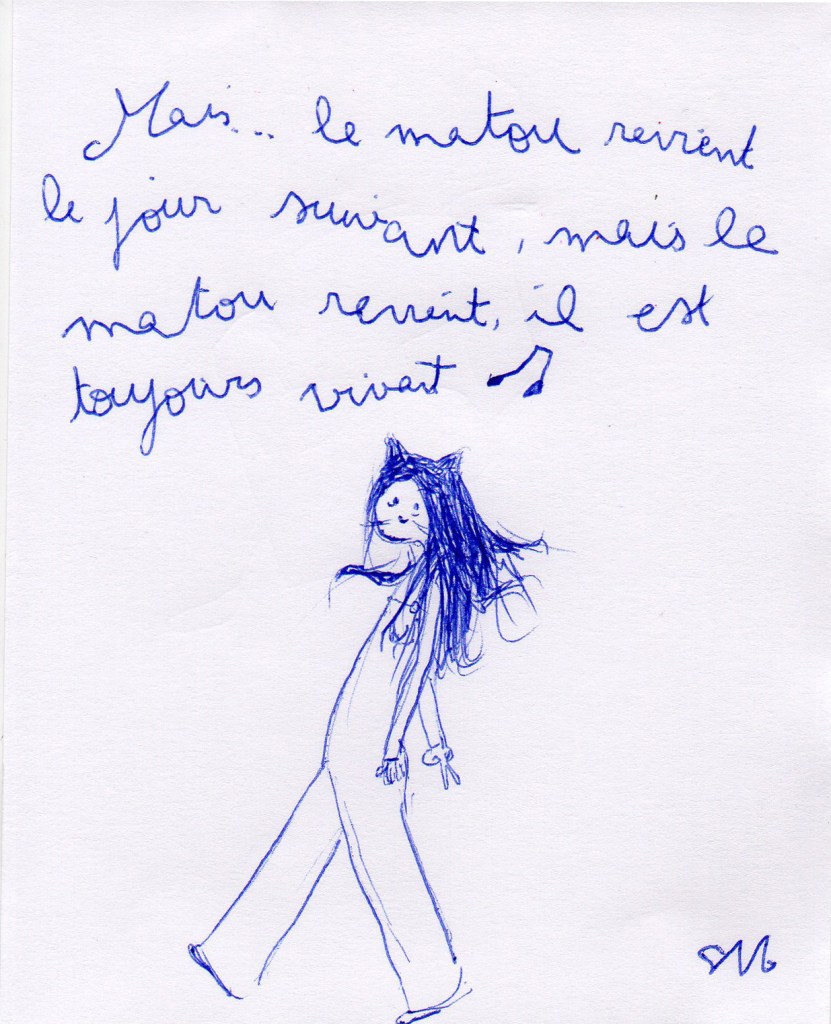 Mais... le matou revient
le jour suivant, mais le
matou revient, il est
toujours vivant